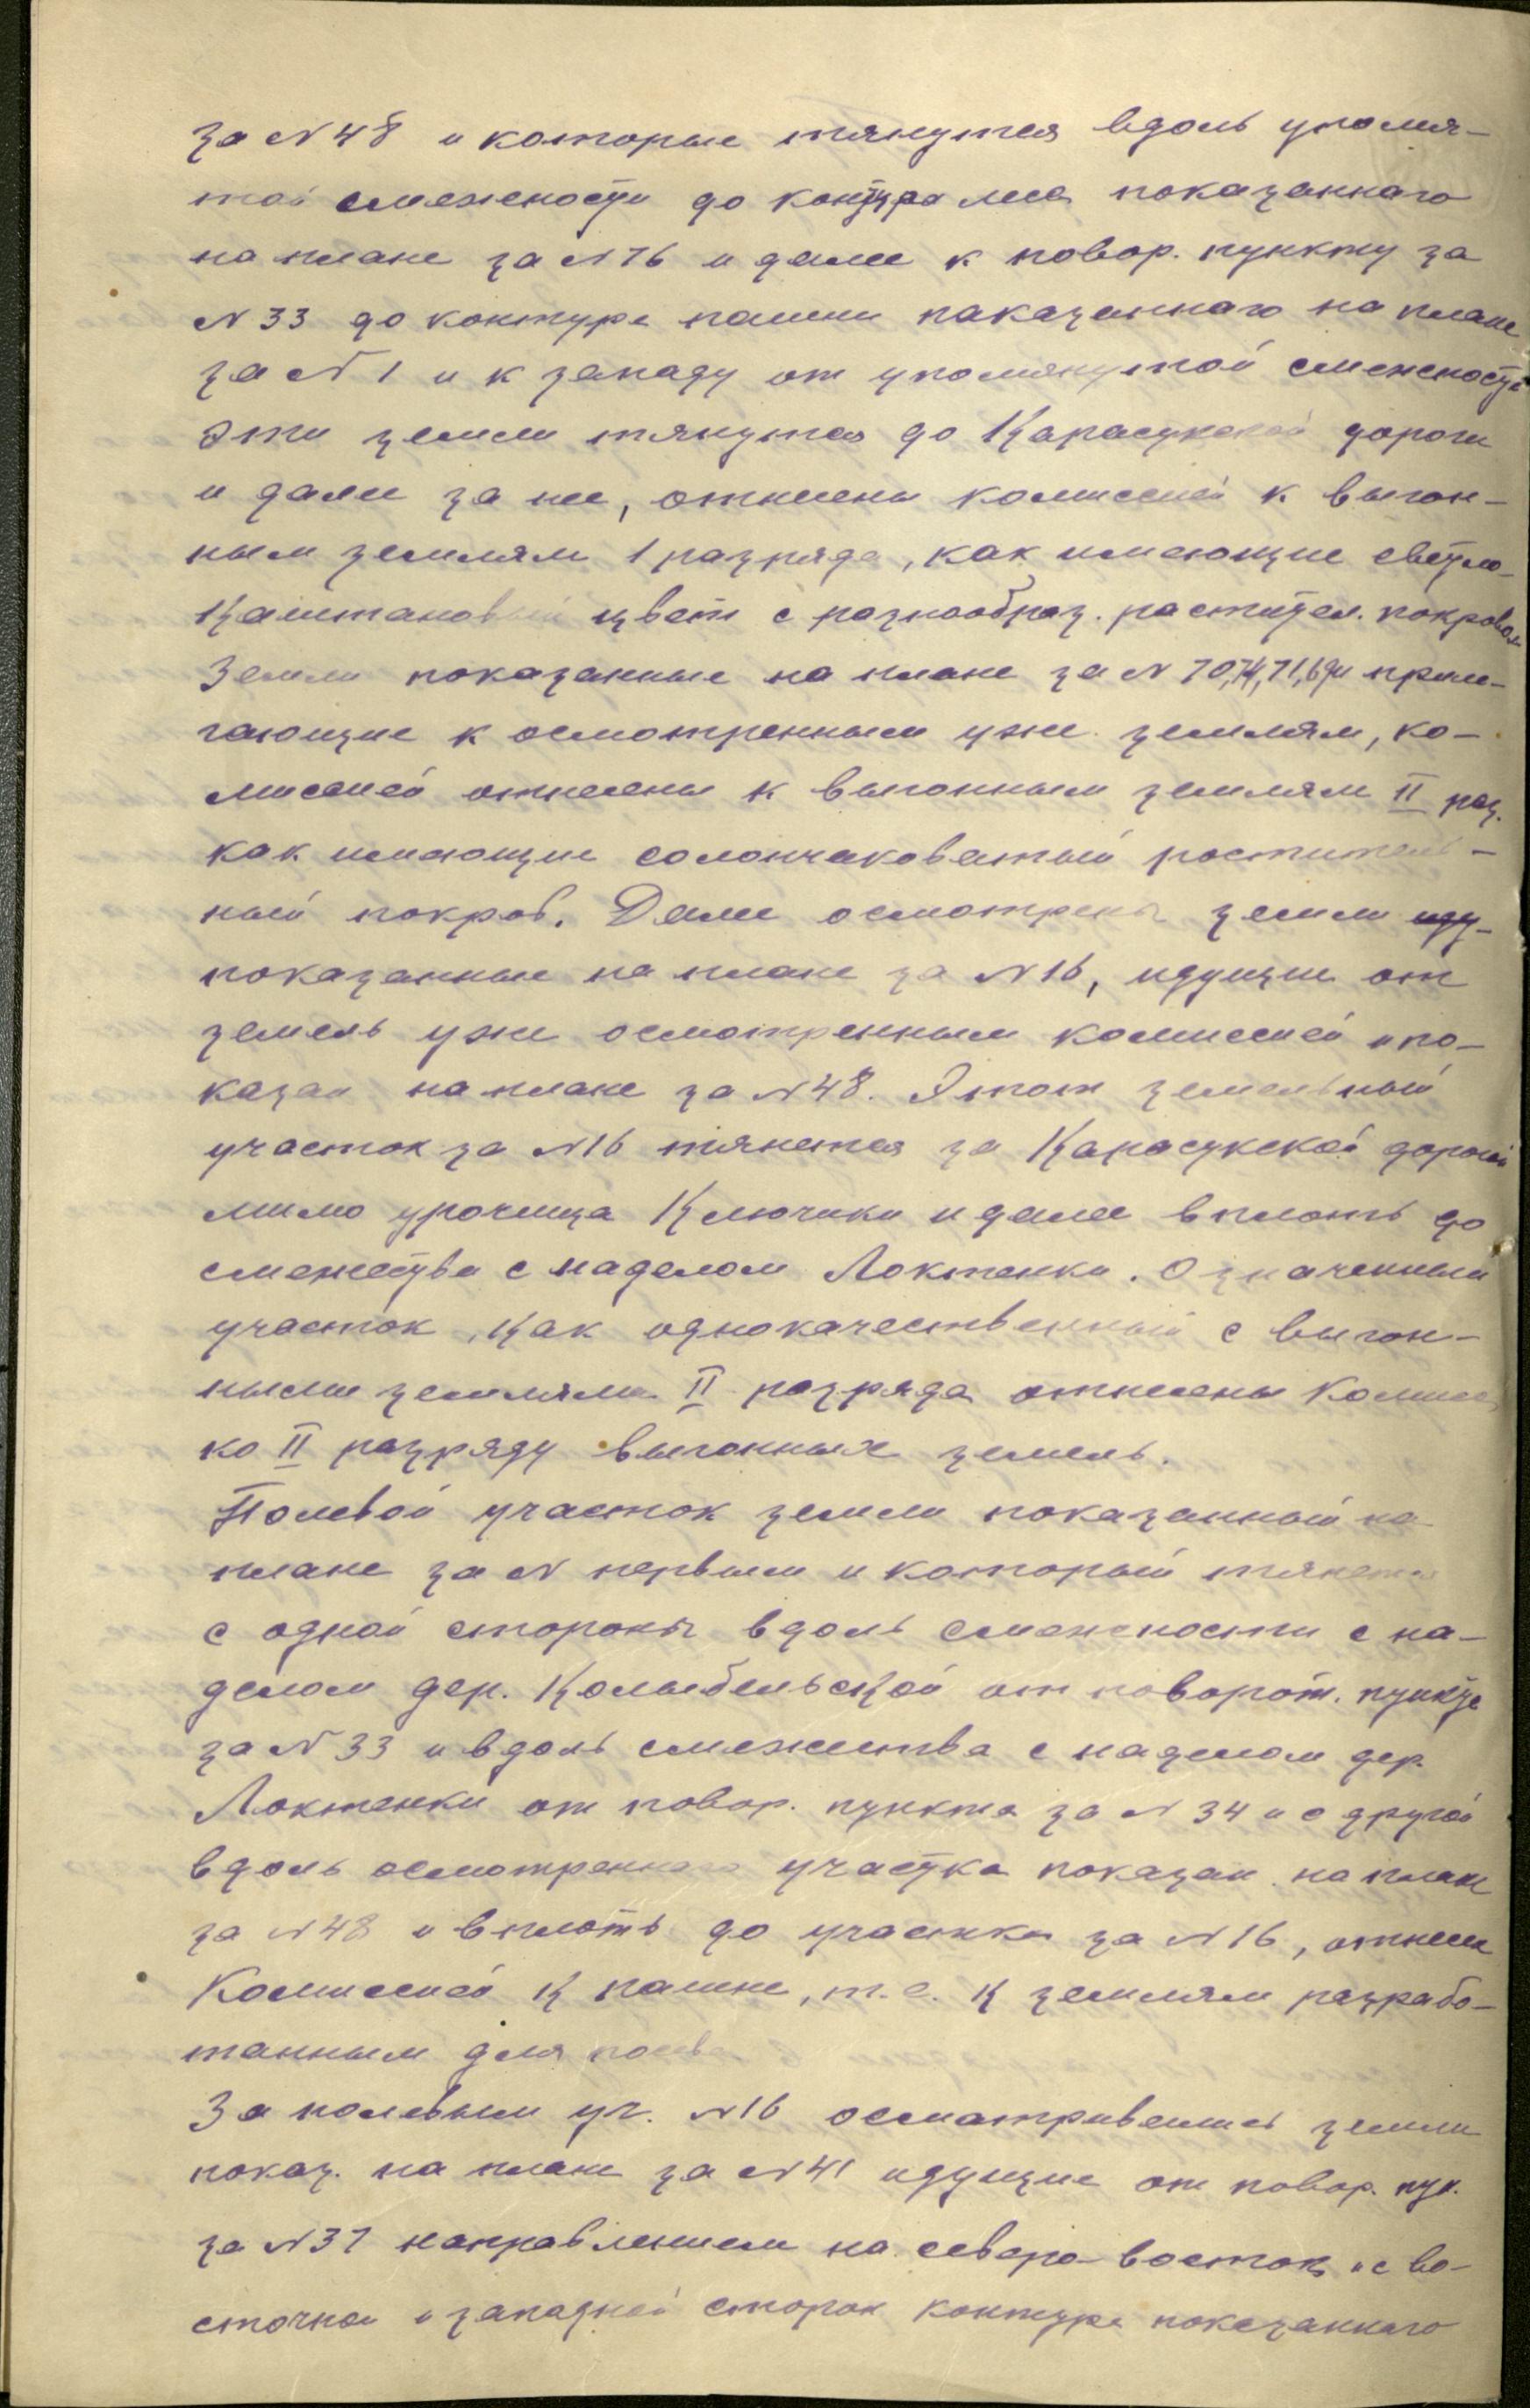 за N 48 и которые тянутся вдоль упомя-
той смежности до контура леса показаннаго
на плане за N 76 и далее к повор. пункту за
N 33 до контура пашни паказаннаго на плане
за N 1 и к западу от упомянутой смежности
Эти земли тянутся до Карасукской дороги
и далее за нее, отнесены комиссией к выгон-
ным землям 1 разряда, как имеющие светло-
Каштановый цвет с разнообраз. растител. покровом
Земли показанные на плане за N 70, 74, 71, 69 и приле-
гающие к осмотренным уже землям, ко-
миссией отнесены к выгонным землям II раз.
как имеющие солончаковатый раститель-
ный покров. Далее осмотрены земли иду-
показанные на плане за N 16, идущие от
земель уже осмотренным комиссией и по-
казан на плане за N 48. Этот земельный
участок за N 16 тянется за Карасукской дорогой
мимо урочища Ключики и далее вплоть до
смежества с наделом Локтенки. Означенный
участок, как однокачественный с выгон-
ными землями II разряда отнесены Комисс
ко II разряду выгонных земель.
Полевой участок земли показанный на
плане за N первым и который тянется
с одной стороны вдоль смежности с на-
делом дер. Колыбельской от поворот. пункта
за N 33 и вдоль смежества с наделом дер.
Локтенки от повор. пункта за N 34 и с другой
вдоль осмотреннаго участка показан. на плане
за N 48 и вплоть до участка за N 16, отнесен
Комиссией к пашне, т.е. к землям разрабо-
танным для посева
За полевым уч. N 16 осматривались земли
показ. на плане за N 41 идущие от повор. пун.
за N 37 направлением на северо-восток и с во-
сточной и западной сторон контура показаннаго